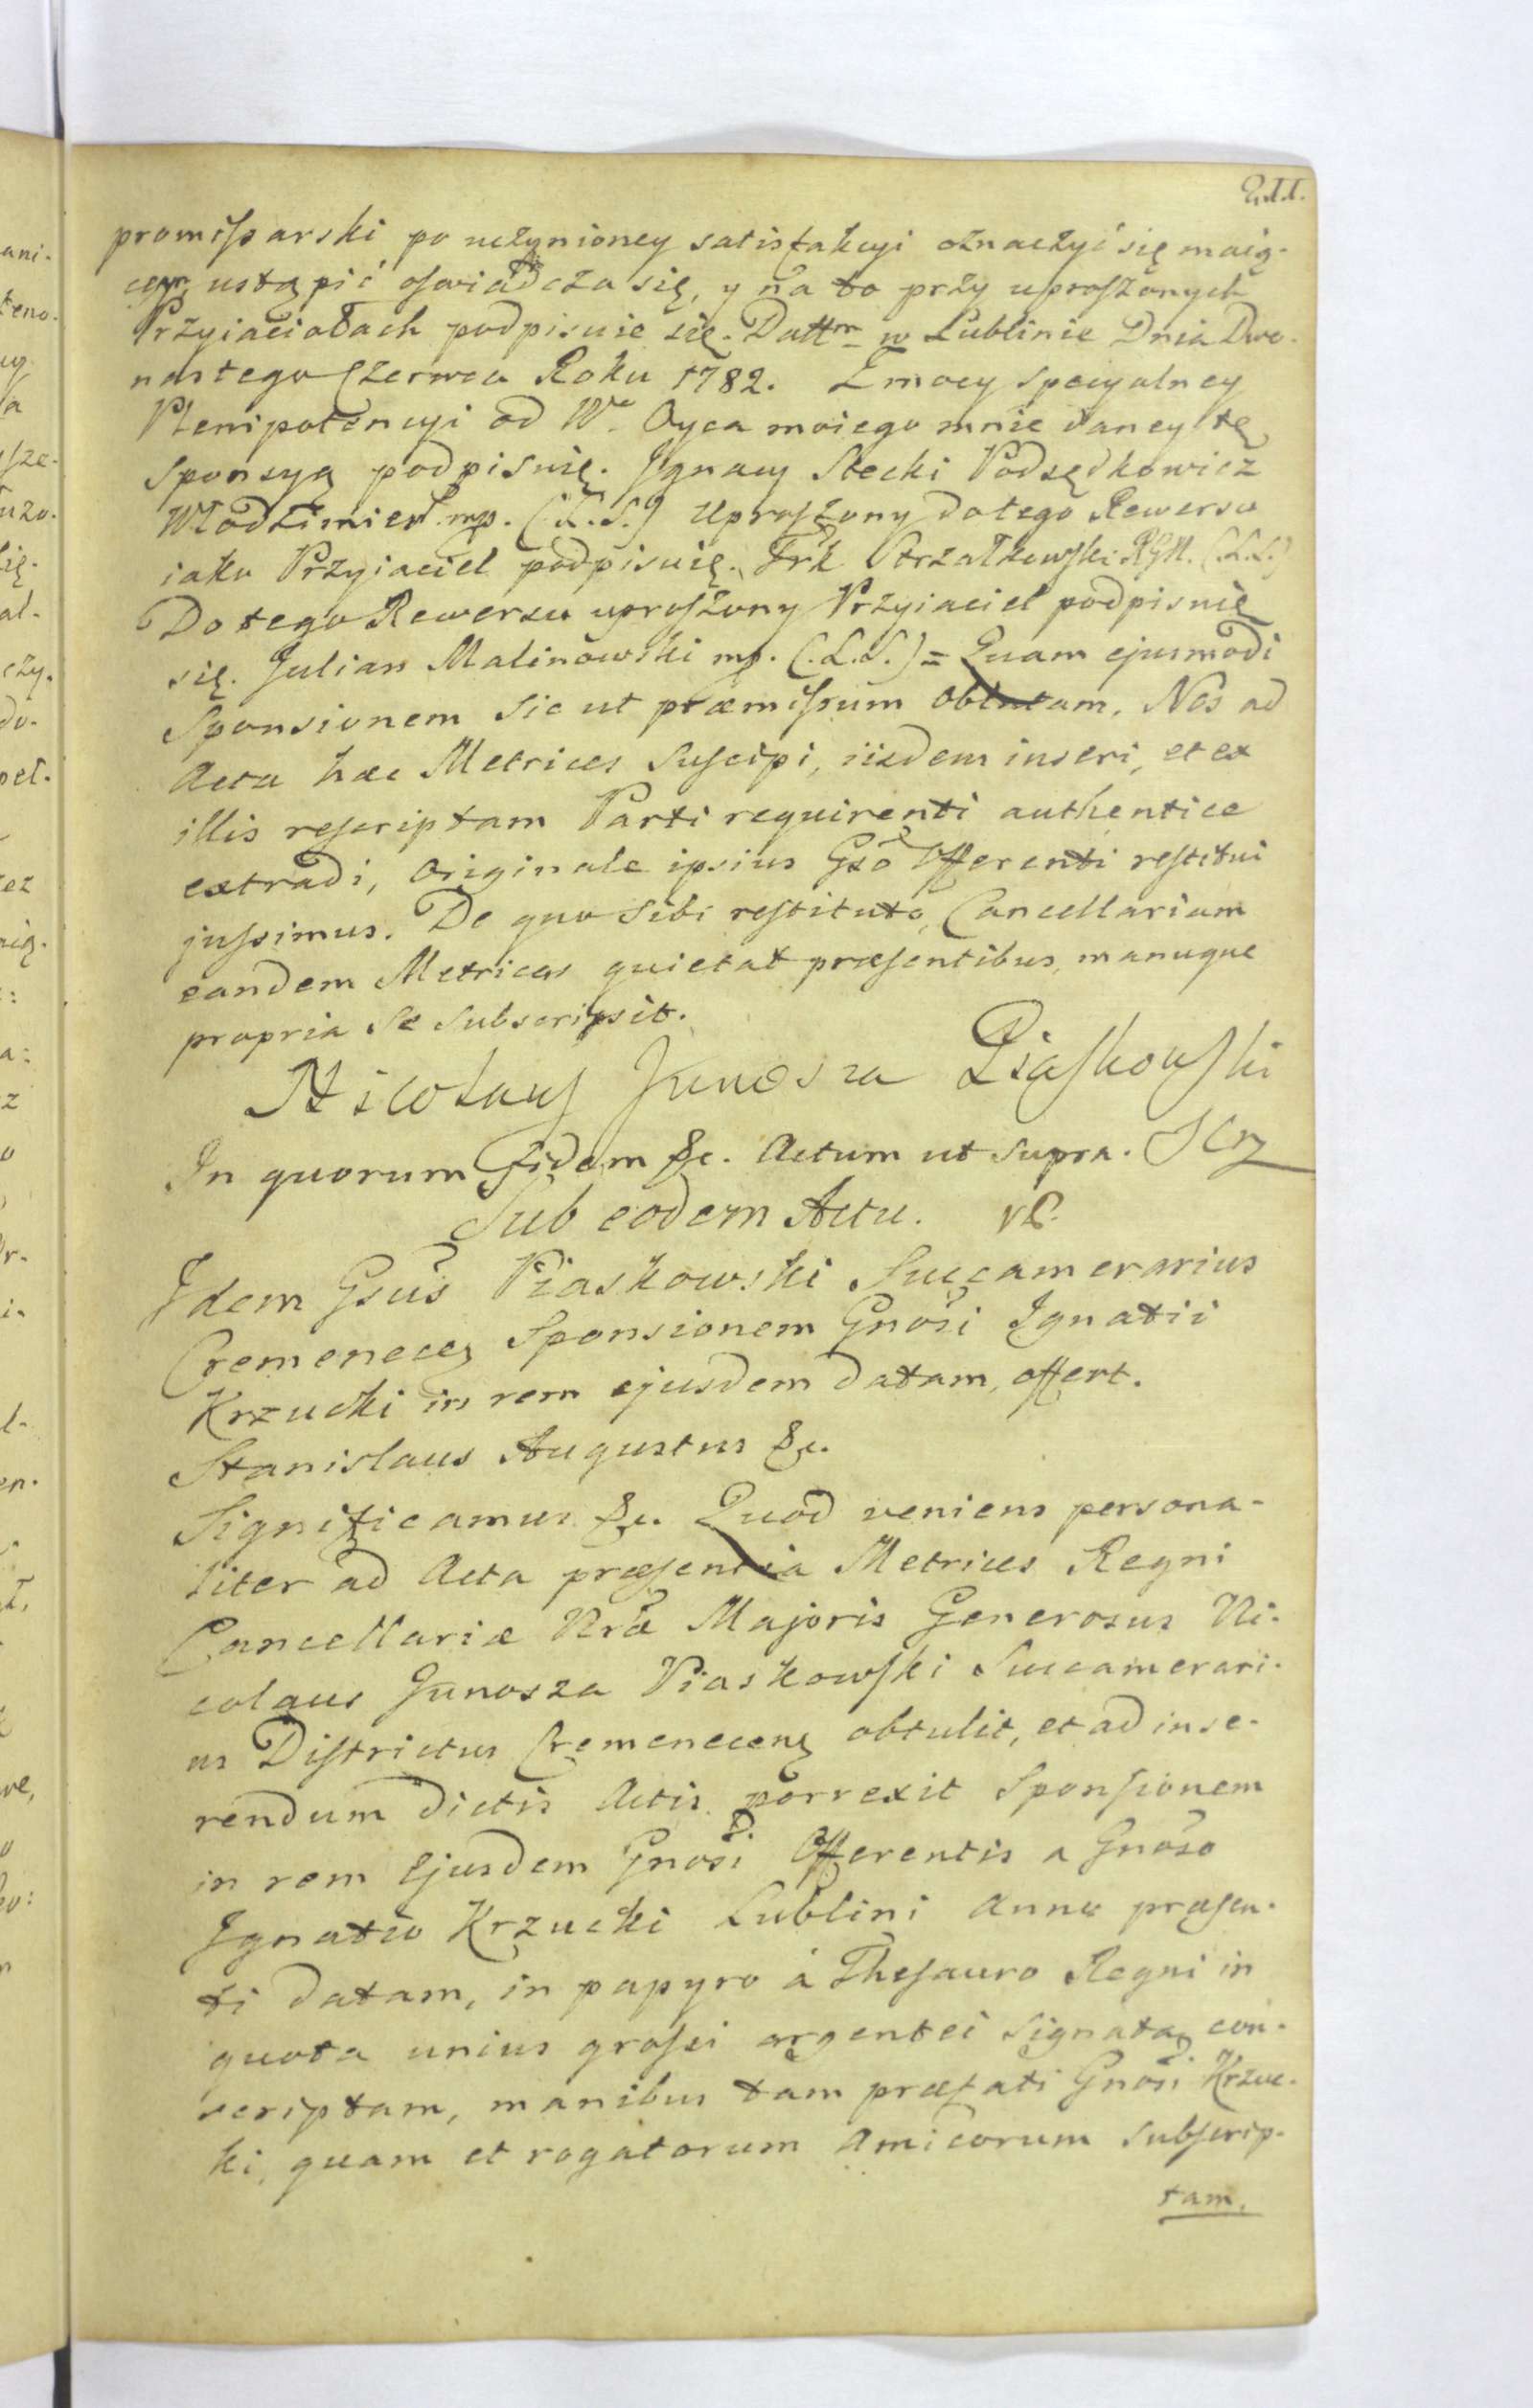 211.
promissarski po uczynioney satisfakcyi oznaczyć się maią-
cego ustąpić oswiadcza się, y na to przy uproszonych
Przyiaciołach podpisuie się. Dattm w Lublinie Dnia Dwo-
nastego Czerwca Roku 1782. Z mocy specyalney
Plenipotencyi od We Oyca moiego mnie daney tę
Sponsyą podpisuię. Ignacy Stecki Podsędkowicz
Włodzimier. mp. (:L.S.) Uproszony do tego Rewersu
iako Przyiaciel podpisuię. Frk Strzałkowski (L.S.)
Do tego Rewersu uproszony Przyiaciel podpisuię
się. Julian Malinowski mp. (.L.S.) = Quam ejusmodi
Sponsionem sic ut præmissum oblatam. Nos ad
Acta hæc Metrices suscipi, iisdem inseri, et ex
illis rescriptam Parti requirenti authentice
extradi, Originale ipsius Gso Offerenti restitui
jussimus. De quo sibi restituto, Cancellariam
eandem Metrices quietat præsentibus, manuque
propria se subscripsit.
Nicolaus Junosza Piaskowski
In quorum fidem &c. Actum ut supra. SCrz
Sub eodem Actu.
Idem Gsus Piaskowski Succamerarius
Cremenecen Sponsionem Gnosi Ignatii
Krzucki in rem ejusdem datam, offert.
Stanislaus Augustus &c.
Significamus &c. Quod veniens persona-
liter ad Acta præsentia Metrices Regni
Cancellariæ Nræ Majoris Generosus Ni-
colaus Junosza Piaskowski Succamerari-
us Districtus Cremenecen obtulit, et ad inse-
rendum dictis Actis porrexit Sponsionem
in rem Ejusdem Gnosi Offerentis a Gnoso
Ignatio Krzucki Lublini Anno præsen-
ti datam, in papyro à Thesauro Regni in
quota unius grossi argentei signata con-
scriptam, manibus tam præfati Gnosi Krzuc-
ki, quam et rogatorum Amicorum subscrip-
tam.